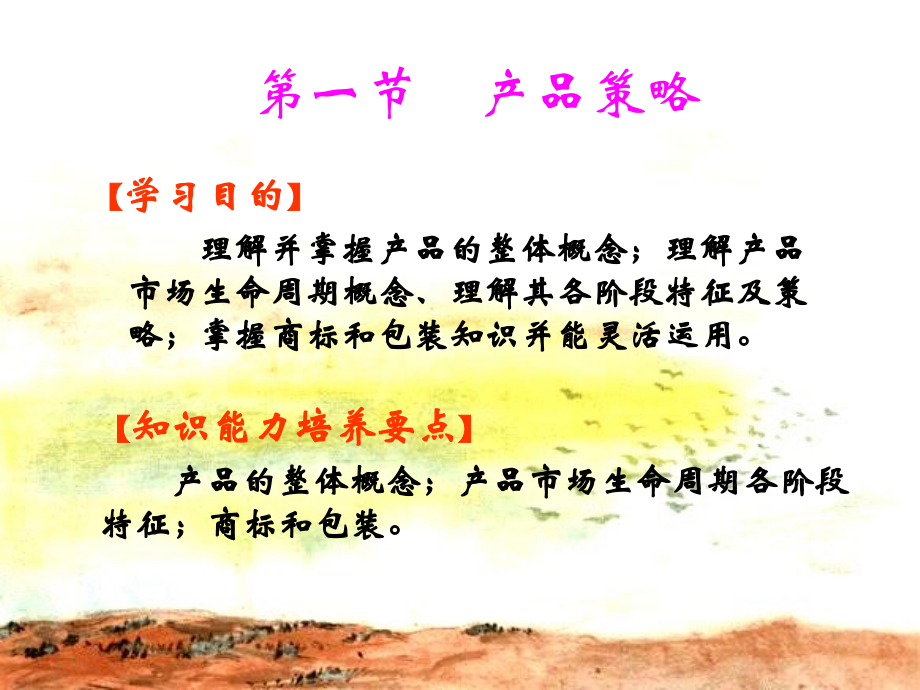 第一节 产品策略
【学习目的】
理解并掌握产品的整体概念；理解产品
市场生命周期概念、理解其各阶段特征及策
略；掌握商标和包装知识并能灵活运用。
【知识能力培养要点】
产品的整体概念；产品市场生命周期各阶段
特征；商标和包装。